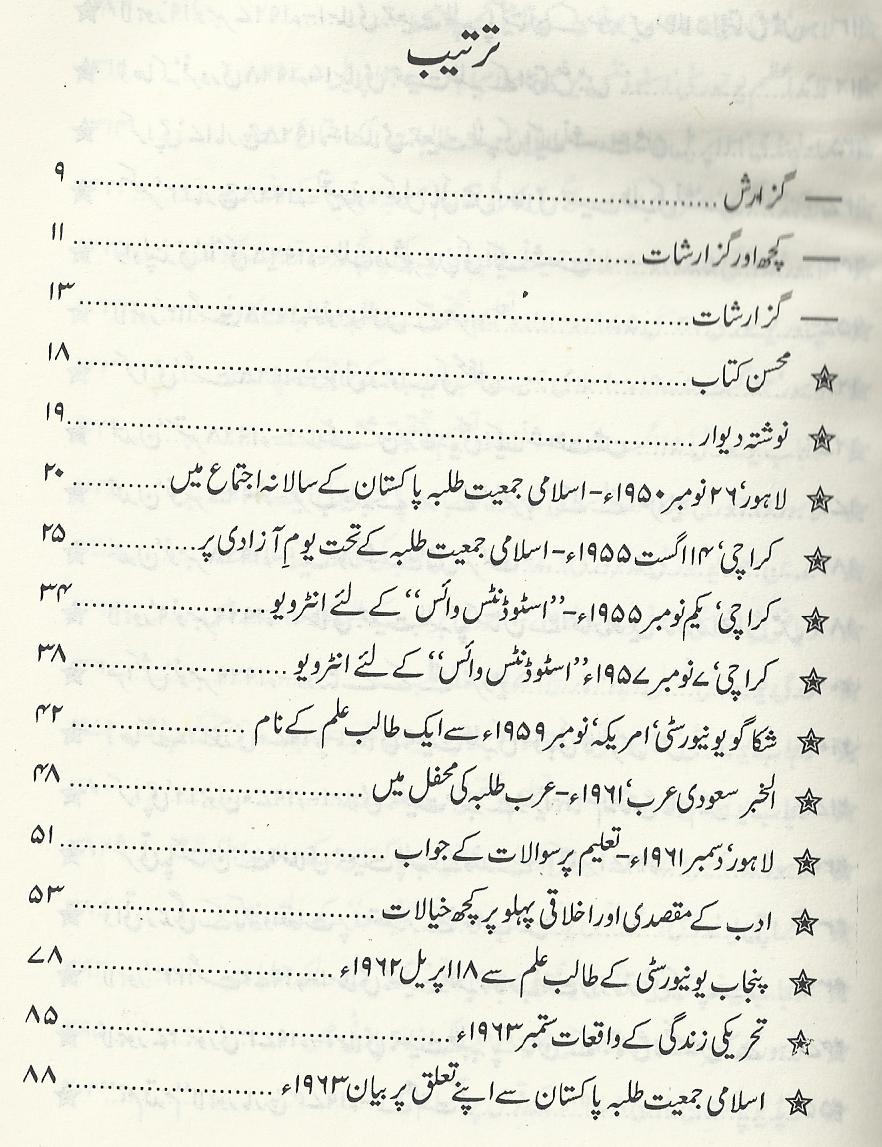 ترتیب
— گزارش ........ ۹
— کچھ اور گزارشات ........ ۱۱
— گزارشات ........ ۱۳
☆ محسن کتاب ........ ۱۸
☆ نوشتہ دیوار ........ ۱۹
☆ لاہور‘ ۲۶ نومبر ۱۹۵۰ء - اسلامی جمعیت طلبہ پاکستان کے سالانہ اجتماع میں ........ ۲۰
☆ کراچی‘ ۱۴ اگست ۱۹۵۵ء - اسلامی جمعیت طلبہ کے تحت یومِ آزادی پر ........ ۲۵
☆ کراچی‘ یکم نومبر ۱۹۵۵ء - ’’اسٹوڈنٹس وائس‘‘ کے لئے انٹرویو ........ ۳۴
☆ کراچی‘ ۷ نومبر ۱۹۵۷ء ’’اسٹوڈنٹس وائس‘‘ کے لئے انٹرویو ........ ۳۸
☆ شکاگو یونیورسٹی‘ امریکہ‘ نومبر ۱۹۵۹ء سے ایک طالب علم کے نام ........ ۴۲
☆ الخبر سعودی عرب‘ ۱۹۶۱ء - عرب طلبہ کی محفل میں ........ ۴۸
☆ لاہور‘ دسمبر ۱۹۶۱ء - تعلیم پر سوالات کے جواب ........ ۵۱
☆ ادب کے مقصدی اور اخلاقی پہلو پر کچھ خیالات ........ ۵۳
☆ پنجاب یونیورسٹی کے طالب علم سے ۱۸ اپریل ۱۹۶۲ء ........ ۷۸
☆ تحریکی زندگی کے واقعات ستمبر ۱۹۶۳ء ........ ۸۵
☆ اسلامی جمعیت طلبہ پاکستان سے اپنے تعلق پر بیان ۱۹۶۳ء ........ ۸۸